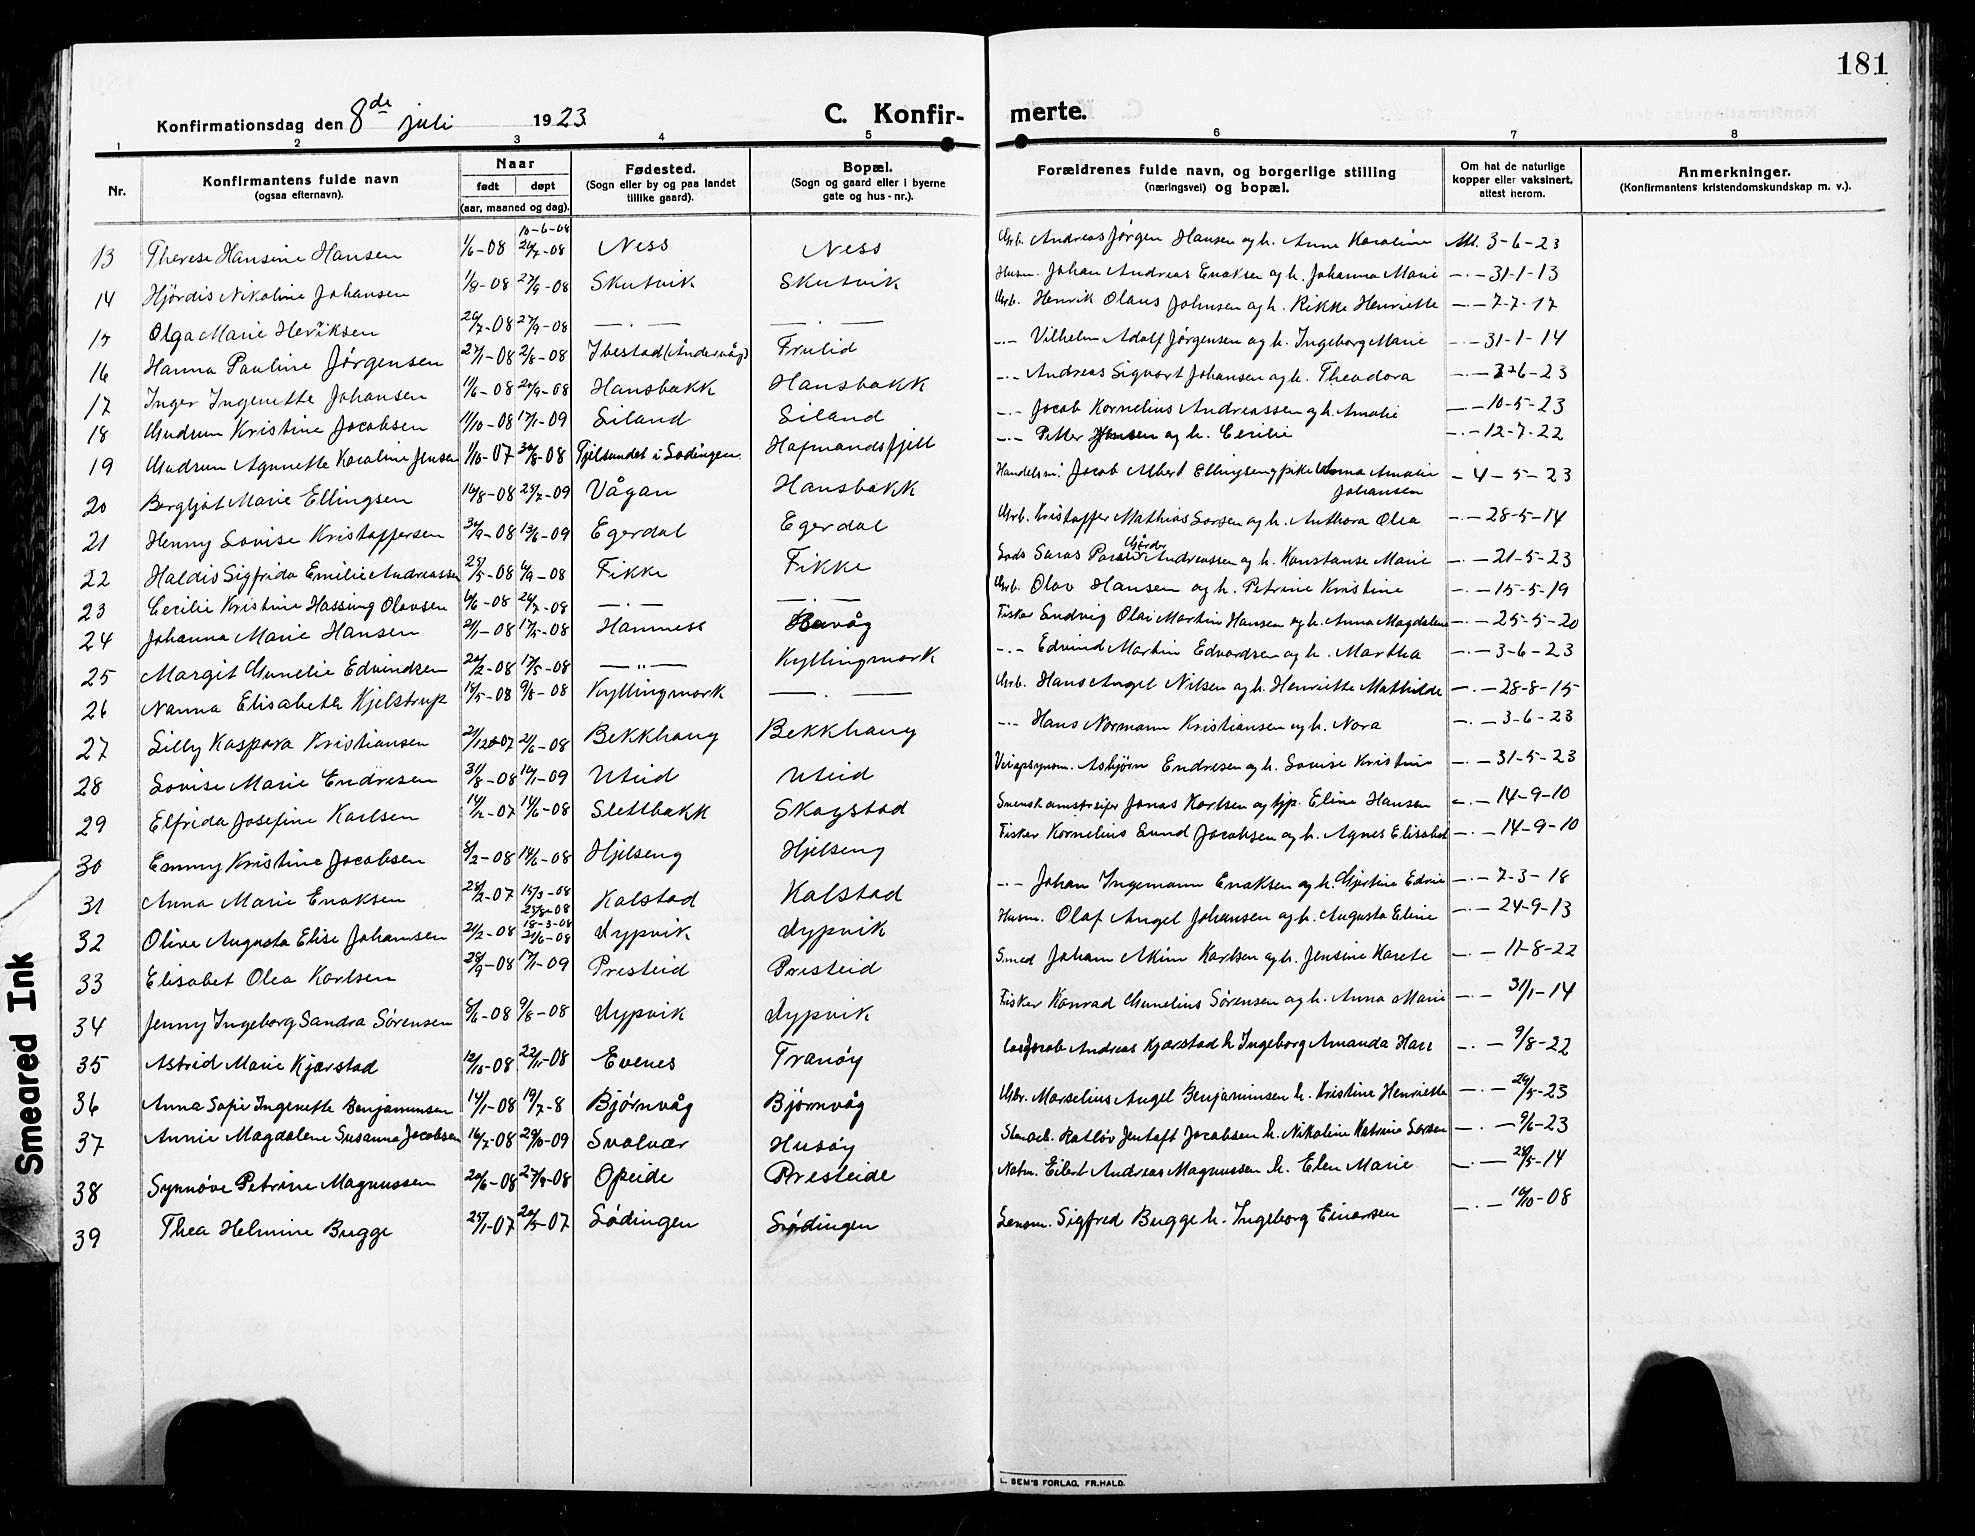 181
Konfirmationsdag den 8de juli 1923
C. Konfir-
merte.
1 2 3 4 5 6 7 8
Nr.
Konfirmantens fulde navn
(ogsaa efternavn).
Naar
født døpt
(aar, maaned og dag).
Fødested.
(Sogn eller by og paa landet
tillike gaard).
Bopæl.
(Sogn og gaard eller i byerne
gate og hus-nr.).
Forældrenes fulde navn, og borgerlige stilling
(næringsvei) og bopæl.
Om hat de naturlige
kopper eller vaksinert,
attest herom.
Anmerkninger.
(Konfirmantens kristendomskundskap m. v.).
10-6-08
13 Therese Hansine Hansen 1/6-08 26/7-08 Ness Ness Grb. Andreas Jørgen Hansen og h. Anne Karoline Att. 3-6-23
14 Hjördis Nikoline Johansen 1/9-08 27/9-08 Skutvik Skutvik Husm. Johan Andreas Enoksen og h. Johanna Marie -.- 31-1-13
15 Olga Marie Heriksen 26/7-08 27/9-08 -.- -.- Grb. Henrik Olaus Johnsen og h. Rikke Henriette -.- 7-7-17
16 Hanna Pauline Jørgensen 27/1-08 2/8-08 Ibestad (Åndervåg) Frulid -.- Vilhelm Adolf Jørgensen og h. Ingeborg Marie -.- 31-1-14
17 Inger Ingenette Johansen 11/6-08 20/9-08 Hansbakk Hansbakk -.- Andreas Sigvart Johansen og h. Theodora -.- 6-23
18 Gudrun Kristine Jacobsen 11/10-08 17/1-09 Siland Siland -.- Jacob Kornelius Andreassen og h. Amalie -.- 10-5-23
19 Gudrun Agnette Karoline Jensen 1/10-07 30/8-08 Fjelsundet i Lødingen. Hafmandsfjell -.- Petter Jensen og h. Cecilie -.- 12-7-22
20 Bergljot Marie Ellingsen 16/8-08 25/7-09 Vågan Hansbakk Handelsm. Jacob Albert Ellingsen og pike Anna Amalie Johansen - 4-5-23
21 Henny Lovise Kristoffersen 30/9-08 13/6-09 Egerdal Egerdal Grb. Kristoffer Mathias Larsen og h. Anthora Olea -.- 28-5-14
22 Haldis Sigfrida Emilie Andreassen 25/5-08 6/9-08 Fikke Fikke Lods Andreassen og h. Konstanse Marie -.- 21-5-23
23 Cecilie Kristine Hassing Olavsen 6/6-08 26/7-08 -.- -.- Grb. Olav Hansen og h. Petrine Kristine -.- 15-5-19
24 Johanna Marie Hansen 21/1-08 17/5-08 Hamnes Fisker Ludvig Olai Martin Hansen og h. Anna Magdalene -.- 25-5-20
25 Margit Gunelie Edvindsen 20/2-08 17/5-08 -"- Kyllingmark -.- Edvind Martin Edvardsen og h. Martha -.- 3-6-23
26 Nanna Elisabeth Kjelstrup 15/5-08 9/8-08 Kyllingmark -.- Grb. Hans Angel Nilsen og h. Henriette Mathilde -.- 28-8-15
27 Lilly Kaspara Kristiansen 21/12-07 21/6-08 Bekkhaug Bekkhaug -.- Hans Normann Kristiansen og h. Nora -.- 3-6-23
28 Lovise Marie Endresen 31/8-08 10/1-09 Uteid Uteid Asbjørn Endresen og h. Lovise Kristine -.- 31-5-23
29 Elfrida Josefine Karlsen 14/2-07 14/6-08 Slettbakk Skogstad Jonas Karlsen og Eline Hansen -.- 14-9-10
30 Emmy Kristine Jacobsen 8/2-08 14/6-08 Hjelseng Hjelseng Fisker Kornelius Lund Jacobsen og h. Agnes Elisabet -.- 14-9-10
31 Anna Marie Enoksen 28/2-07 15/3-08 Kalstad Kalstad -.- Johan Ingemann Enoksen og h. Gjertine Edvine -.- 7-3-18
18-3-08
32 Olive Augusta Elise Johansen 21/2-08 21/6-08 Dypvik Dypvik Husm. Olaf Angel Johansen og h. Augusta Eline -.- 24-9-13
33 Elisabet Olea Karlsen 28/9-08 17/1-09 Presteid Presteid Smed Johan Akim Karlsen og h. Jensine Karete -.- 11-8-22
34 Jenny Ingeborg Sandra Sörensen 8/6-08 9/8-08 Dypvik Dypvik Fisker Konrad Gunelius Sörensen og h. Anna Marie -.- 31/1-14
35 Astrid Marie Kjærstad 12/10-08 22/11-08 Evenes Tranöy Jacob Andreas Kjærstad h. Ingeborg Amanda -.- 9/8-22
36 Anna Sofie Ingenette Benjaminsen 14/1-08 19/7-8 Björnvåg Björnvåg Gbr. Marselius Angel Benjaminsen h. Kristine Henriette -.- 26/5-23
37 Annie Magdalene Susanna Jacobsen 16/7-08 29/10-09 Svolvær Husöy Ratlöv Jentoft Jacobsen h. Nikoline Katrine Larsen -.- 9/6-23
38 Synnöve Petrine Magnussen 20/6-08 27/9-08 Opeide Presteide Eilert Andreas Magnussen h. Elen Marie -.- 28/5-14
39 Thea Helmine Bugge 25/1-07 20/5-07 Lödingen Lödingen Lensm. Sigfred Bugge h. Ingeborg Einarsen -.- 10/10-08
Smeared Ink
L. SEM'S FORLAG, FR.HALD.